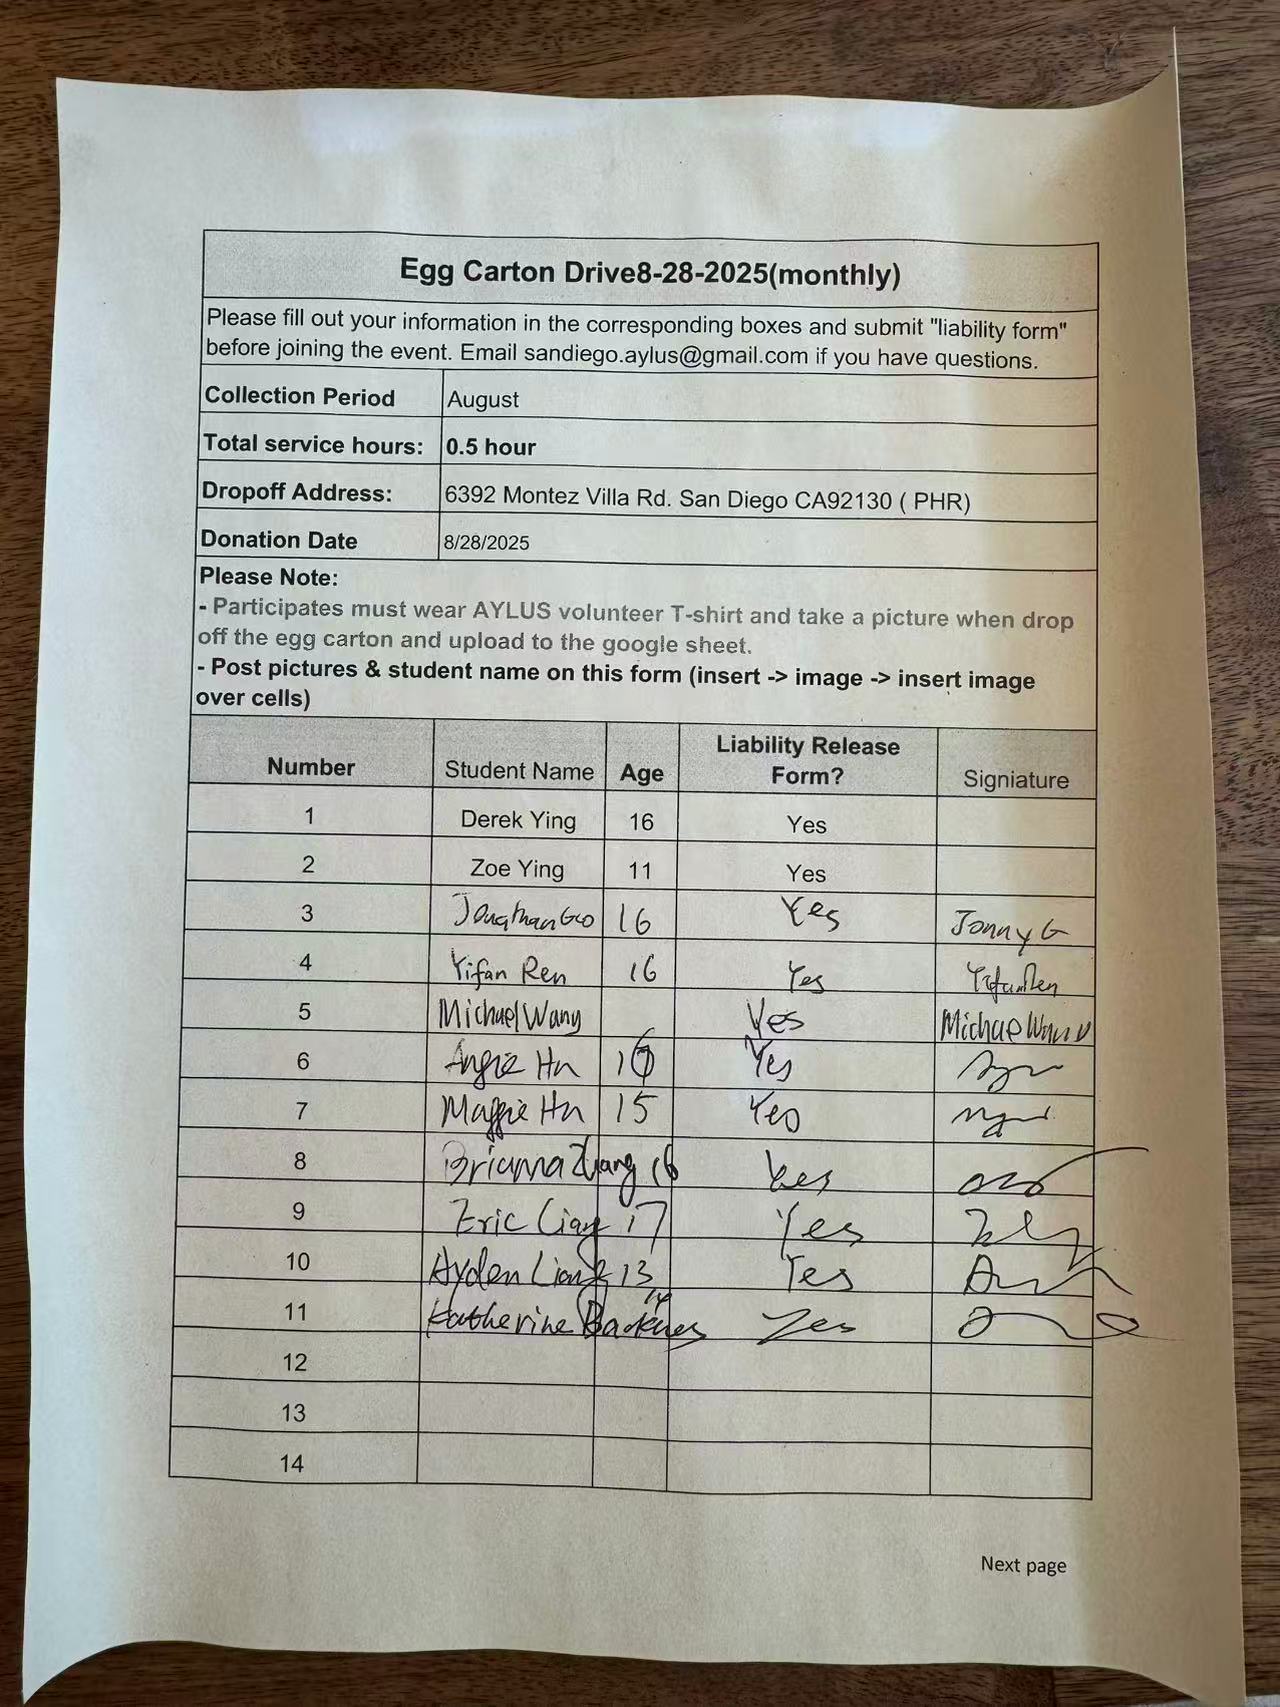 Egg Carton Drive8-28-2025(monthly)
Please fill out your information in the corresponding boxes and submit "liability form"
before joining the event. Email sandiego.aylus@gmail.com if you have questions.
Collection Period August
Total service hours: 0.5 hour
Dropoff Address: 6392 Montez Villa Rd. San Diego CA92130 ( PHR)
Donation Date 8/28/2025
Please Note:
- Participates must wear AYLUS volunteer T-shirt and take a picture when drop
off the egg carton and upload to the google sheet.
- Post pictures & student name on this form (insert -> image -> insert image
over cells)
Number Student Name Age Liability Release Form? Signiature
1 Derek Ying 16 Yes
2 Zoe Ying 11 Yes
3 Jonathan Guo 16 Yes Jonny G
4 Yifan Ren 16 Yes Yifan Ren
5 Michael Wang Yes Michael Wang
6 Angie Hu Yes
7 Maggie Hu 15 Yes
8 Brianna Zhang 16 Yes
9 Eric Liang 17 Yes
10 Ayden Liang 13 Yes
11 Katherine 14 Yes
12
13
14
Next page